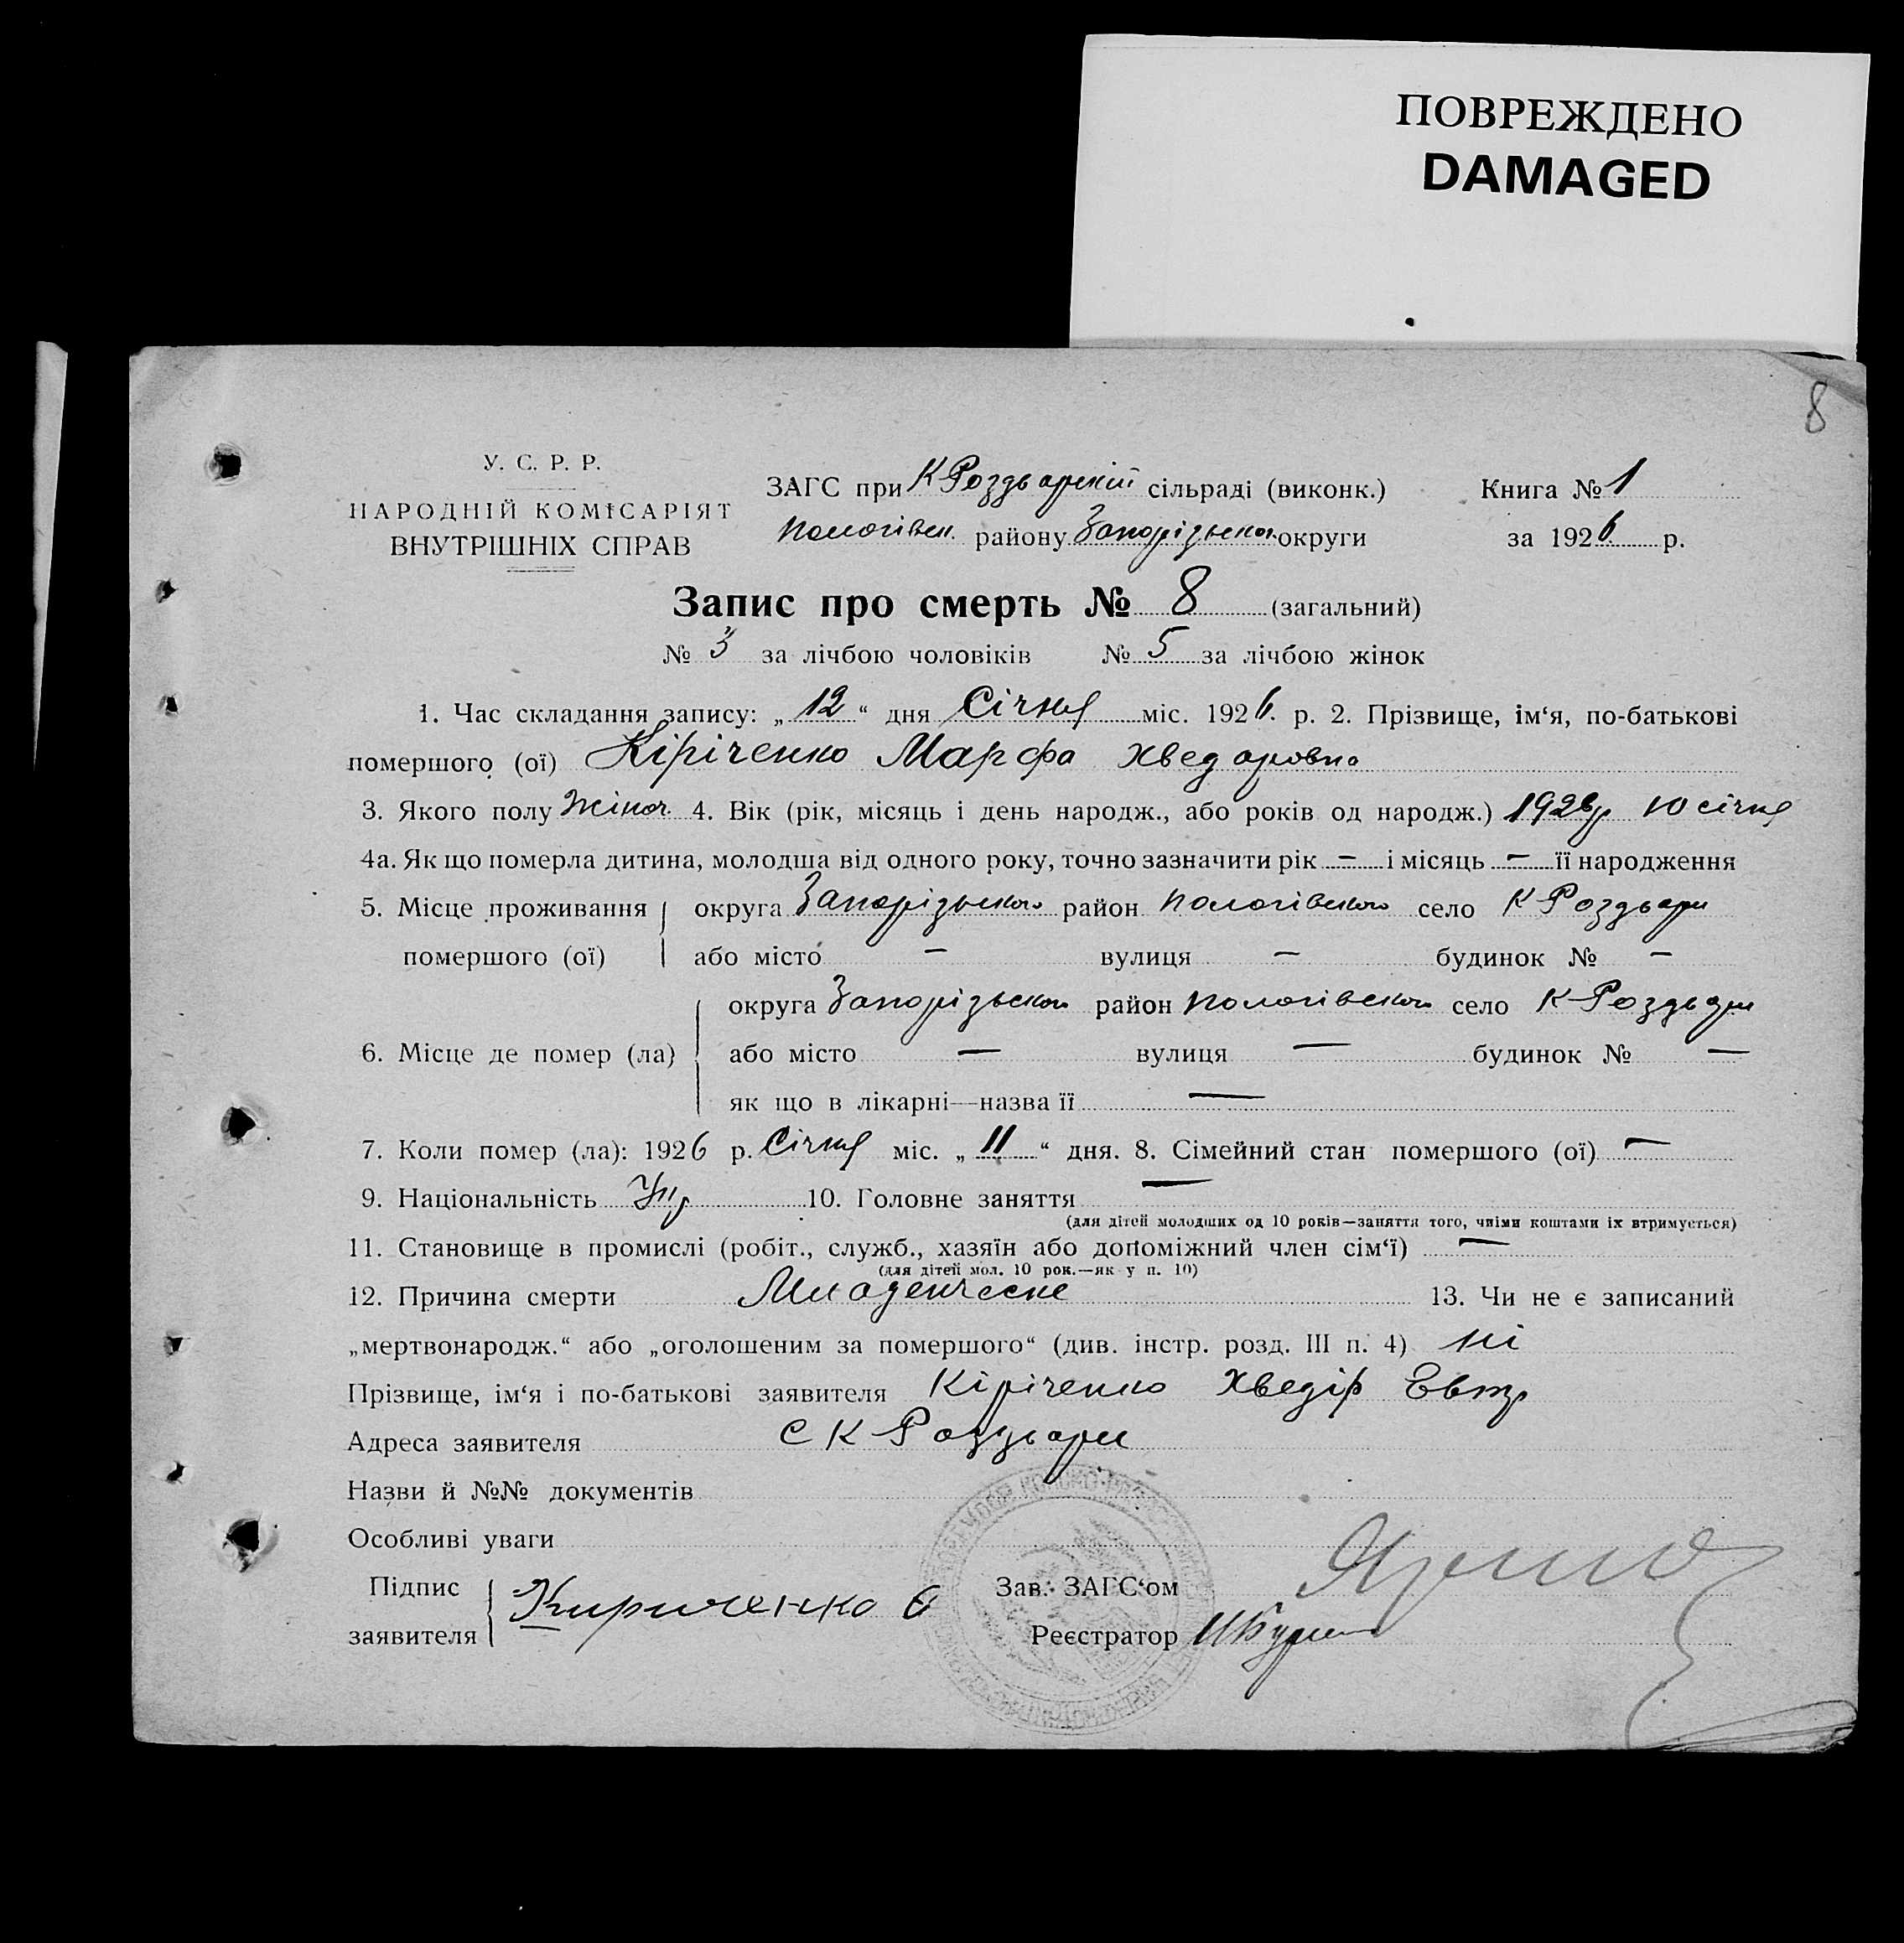 ПОВРЕЖДЕНО
DAMAGED
8
У. С. Р. Р.
НАРОДНІЙ КОМІСАРІЯТ
ВНУТРІШНІХ СПРАВ
ЗАГС при К Роздорскій сільраді (виконк.) Книга № 1
Пологівск. району Запорізького округи за 1926 р.
Запис про смерть № 8 (загальний)
№ 3 за лічбою чоловіків № 5 за лічбою жінок
1. Час складання запису: „ 12 “ дня Січня міс. 1926. р. 2. Прізвище, ім‘я, по-батькові
помершого (ої) Кіріченко Марфа Хведоровна
3. Якого полу Жіноч. 4. Вік (рік, місяць і день народж., або років од народж.) 10 січня
4а. Як що померла дитина, молодша від одного року, точно зазначити рік — і місяць — її народження
5. Місце проживання округа Запорізького район Пологівского село К Роздори
помершого (ої) або місто — вулиця — будинок № —
округа Запорізького район Пологівского село К Роздори
6. Місце де помер (ла) або місто — вулиця — будинок № —
як що в лікарні—назва її —
7. Коли помер (ла): 1926 р. Січня міс. „ 11 “ дня. 8. Сімейний стан помершого (ої) —
9. Національність Укр 10. Головне заняття —
(для дітей молодших од 10 років—заняття того, чиїми коштами їх втримується)
11. Становище в промислі (робіт., служб., хазяїн або допоміжний член сім‘ї) —
(для дітей мол. 10 рок.—як у п. 10)
12. Причина смерти Младенческе 13. Чи не є записаний
„мертвонародж.“ або „оголошеним за помершого“ (див. інстр. розд. III п. 4) ні
Прізвище, ім‘я і по-батькові заявителя Кіріченко Хведір
Адреса заявителя С К Роздори
Назви й №№ документів
Особливі уваги
Підпис Зав. ЗАГС‘ом
заявителя Кириченко Реєстратор